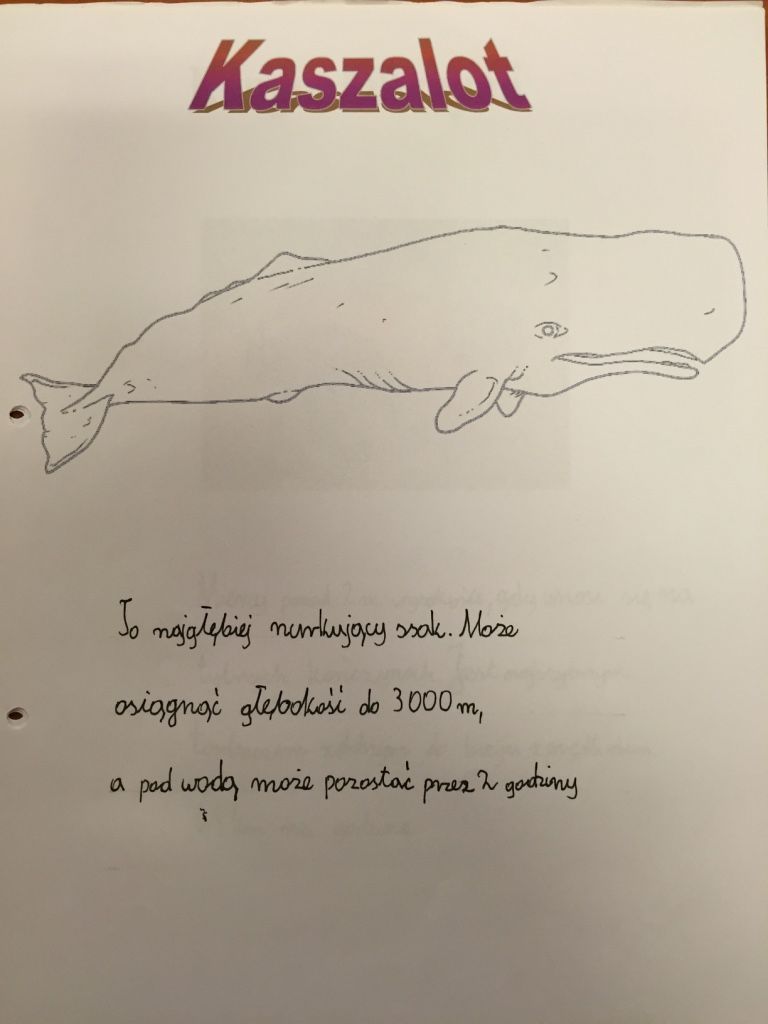 Kaszalot
To najgłębiej nurkujący ssak. Może
osiągnąć głębokość do 3000 m,
a pod wodą może pozostać przez 2 godziny